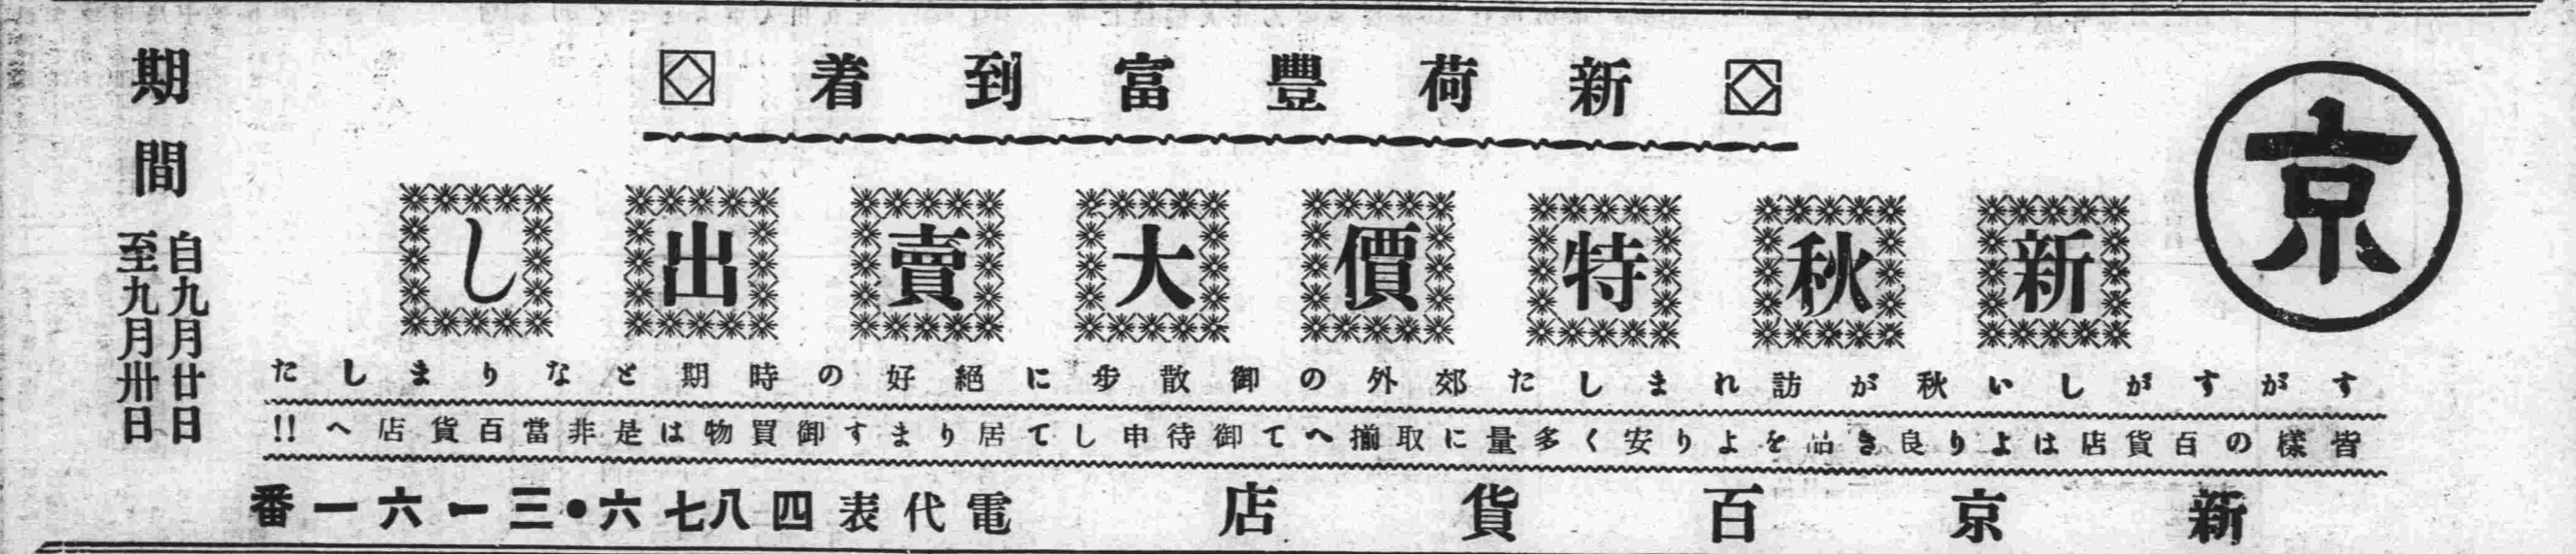 京
◇新荷豐富到着◇
新秋特價大賣出し
すがすがしい秋が訪れました郊外の御散歩に絕好の時期となりました
皆樣の百貨店はより良き品をより安く多量に取揃へて御待申して居ります御買物は是非當百貨店へ!!
新京百貨店
電代表四八七六•三一六一番
期間
自九月廿日
至九月卅日